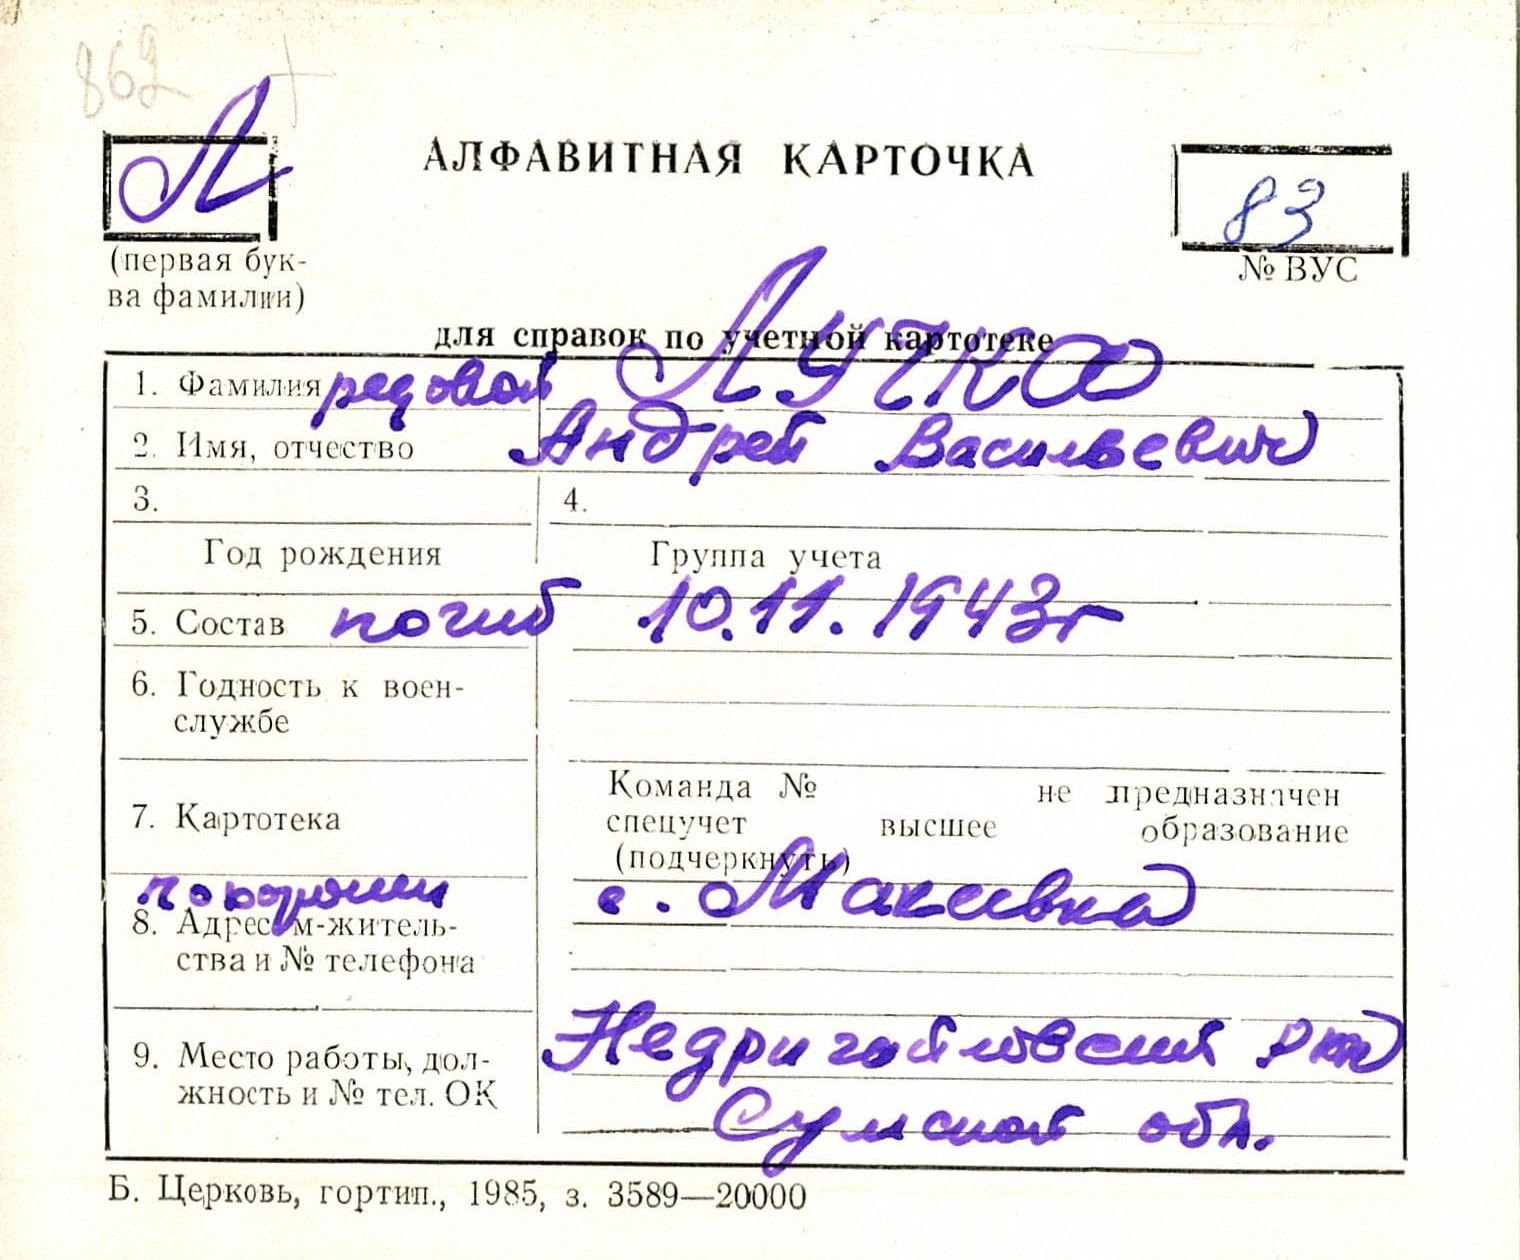 862
Л
АЛФАВИТНАЯ КАРТОЧКА
83
(первая бук-
ва фамилии)
№ ВУС
для справок по учетной картотеке
1. Фамилия рядовой ЛУЧКА
2. Имя, отчество Андрей Васильевич
3. 4.
Год рождения Группа учета
5. Состав погиб 10.11.1943г
6. Годность к воен-
службе
7. Картотека
Команда № не предназначен
спецучет высшее образование
(подчеркнуть)
похоронен с. Макеевка
8. Адрес м-житель-
ства и № телефона
9. Место работы, дол-
жность и № тел. ОК
Недригайловский
Сумской обл.
Б. Церковь, гортип., 1985, з. 3589—20000